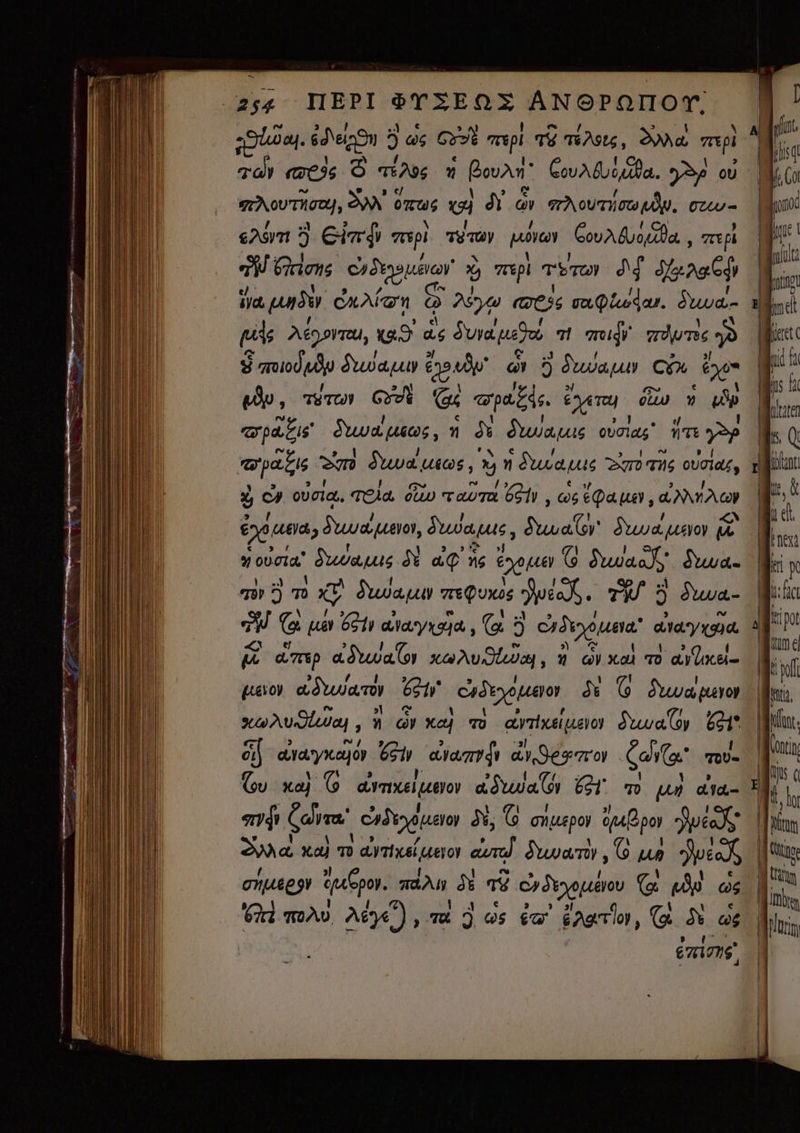 254 ΠΕΡΙ ΦΥΣΕΩΣ ΑΝΘΡΩΠΟΥ,
ρθῆναι. ἐδείχθη δὲ ὡς οὐδὲ περὶ τοῦ τέλους, ἀλλὰ περὶ
τῶν πρὸς τὸ τέλος ἡ βουλή· βουλευόμεθα γὰρ οὐ
πλουτῆσαι, ἀλλ' ὅπως καὶ δι' ὧν πλουτήσωμεν. συν-
ελόντι δὲ εἰπεῖν περὶ τούτων μόνων βουλευόμεθα, περὶ
τῶν ἐπίσης ἐνδεχομένων· καὶ περὶ τούτων δεῖ διαλαβεῖν
ἵνα μηδὲν ἐκλίπῃ τῷ λόγῳ πρὸς σαφήνειαν. δυνά-
μεις λέγονται, καθ' ἃς δυνάμεθά τι ποιεῖν· πάντως γὰρ
οὗ ποιοῦμεν δύναμιν ἔχομεν· ὧν δὲ δύναμιν οὐκ ἔχο-
μεν, τούτων οὐδὲ τὰς πράξεις. ἔχεται οὖν ἡ μὲν
πρᾶξις δυνάμεως, ἡ δὲ δύναμις οὐσίας· ἥτε γὰρ
πρᾶξις ἀπὸ δυνάμεως, καὶ ἡ δύναμις ἀπὸ τῆς οὐσίας,
καὶ ἐν οὐσίᾳ. τρία οὖν ταῦτά ἐστιν, ὡς ἔφαμεν, ἀλλήλων
ἐχόμενα, δυνάμενον, δύναμις, δυνατόν· δυνάμενον μὲν
ἡ οὐσία· δύναμις δὲ ἀφ' ἧς ἔχομεν τὸ δύνασθαι· δυνα-
τὸν δὲ τὸ κατὰ δύναμιν πεφυκὸς γενέσθαι. τῶν δὲ δυνα-
τῶν τὰ μέν ἐστιν ἀναγκαῖα, τὰ δὲ ἐνδεχόμενα· ἀναγκαῖα
μὲν ἅπερ ἀδύνατον κωλυθῆναι, ἢ ὧν καὶ τὸ ἀντικεί-
μενον ἀδύνατόν ἐστιν· ἐνδεχόμενον δὲ τὸ δυνάμενον
κωλυθῆναι, ἢ ὧν καὶ τὸ ἀντικείμενον δυνατόν ἐστι·
οἷον ἀναγκαῖόν ἐστιν ἀναπνεῖν ἄνθρωπον ζῶντα· τού-
του καὶ τὸ ἀντικείμενον ἀδύνατόν ἐστι τὸ μὴ ἀνα-
πνεῖν ζῶντα· ἐνδεχόμενον δὲ, τὸ σήμερον ὄμβρον γενέσθαι·
ἀλλὰ καὶ τὸ ἀντικείμενον αὐτῷ δυνατὸν, τὸ μὴ γενέσθαι
σήμερον ὄμβρον. πάλιν δὲ τοῦ ἐνδεχομένου τὰ μὲν ὡς
ἐπὶ πολὺ λέγεται, τὰ δὲ ὡς ἐπ' ἔλαττον, τὰ δὲ ὡς
ἐπίσης·